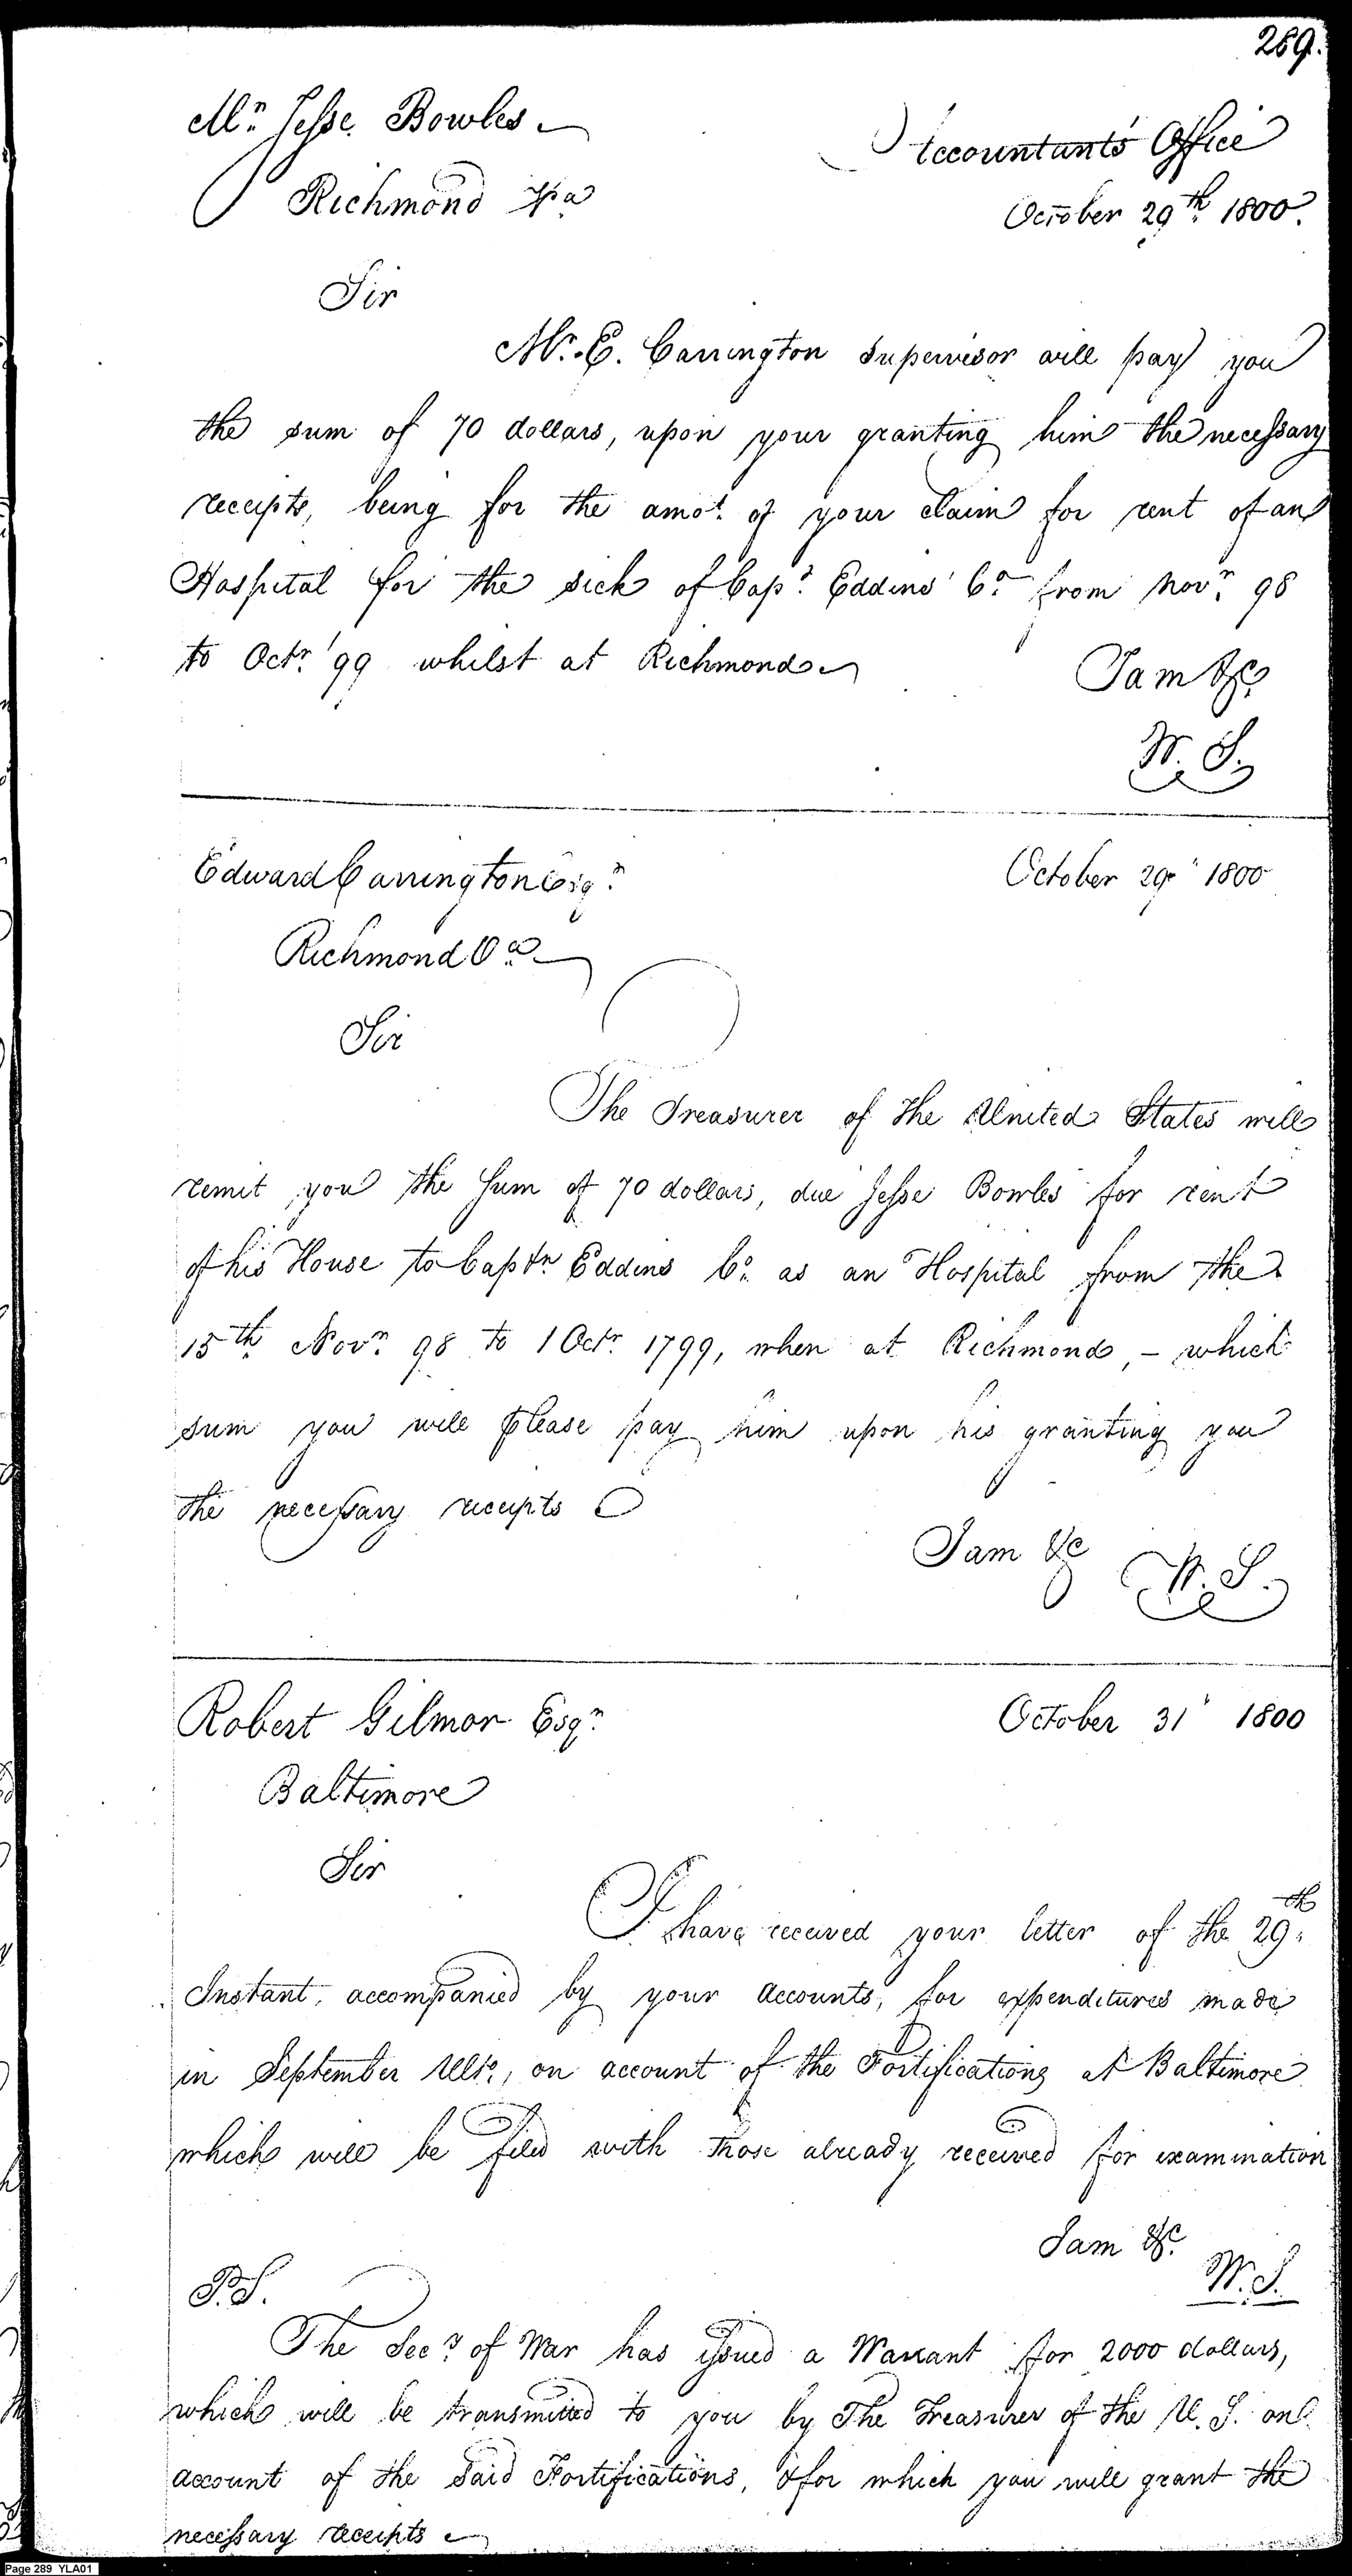 289.
Mr. Jesse Bowles
Accountants Office
Richmond Va
October 29th 1800.
Sir
Mr. E. Carrington Supervisor will pay you
the sum of 70 dollars, upon your granting him the necessary
receipts, being for the amot. of your claim for rent of an
Hospital for the sick of Capt. Eddins' Co. from Novr. 98
to Octr. '99 whilst at Richmond
I am &c.
W. S.
Edward Carrington Esqr.
October 29' 1800
Richmond Va.
Sir
The Treasurer of the United States will
remit you the sum of 70 dollars, due Jesse Bowles for rent
of his House to Captn. Eddins Co. as an Hospital from the
15th. Novr. 98 to 1 Octr. 1799, when at Richmond, - which
sum you will please pay him upon his granting you
the necessary receipts
I am &c
W. S.
Robert Gilmor Esqr.
October 31' 1800
Baltimore
Sir
I have received your letter of the 29th.
Instant, accompanied by your accounts, for expenditures made
in September Ulto., on account of the Fortifications at Baltimore
which will be filed with those already received for examination
I am &c.
W. S.
P.S.
The Secy. of War has issued a Warrant for 2000 dollars,
which will be transmitted to you by The Treasurer of the U. S. on
account of the said Fortifications, & for which you will grant the
necessary receipts
Page 289 YLA01